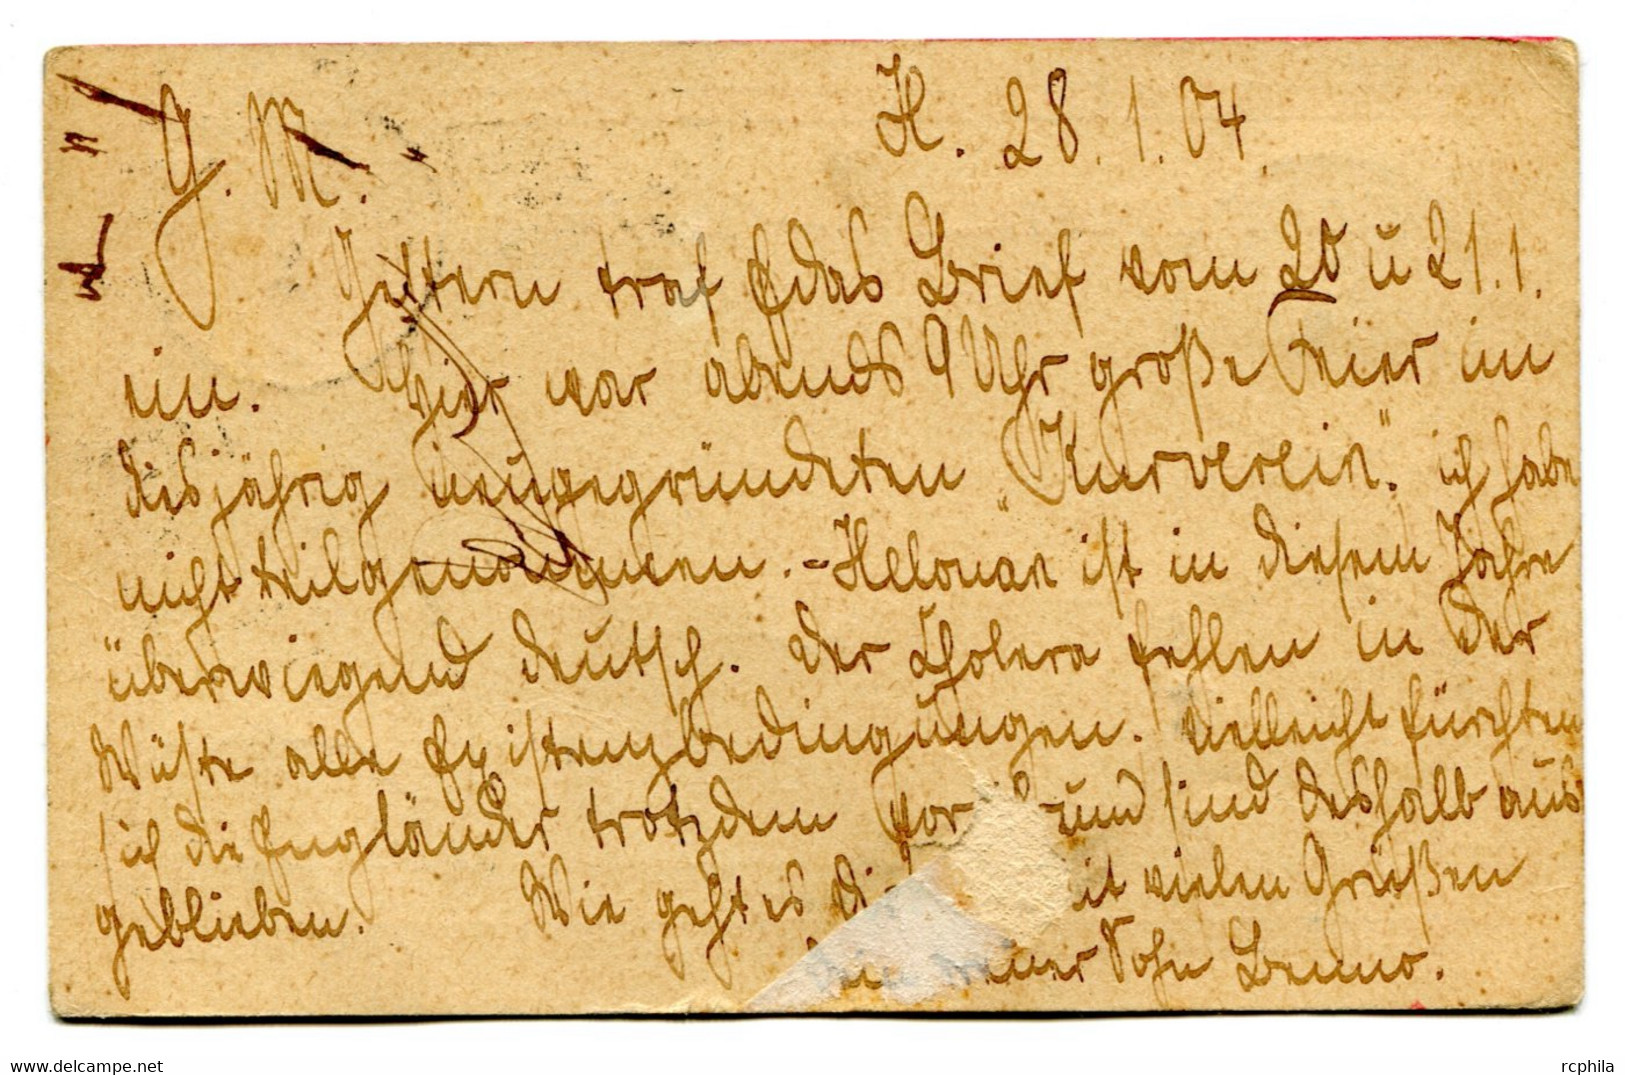 H. 28.1.04.
G. M.
Gestern traf das Brief vom 20 u 21.1.
ein. Hier war abends 9 Uhr große Feier im
diesjährig neugegründeten "Kurverein". ich habe
nicht teilgenommen. - Helouan ist in diesem Jahre
überwiegend deutsch. Der Cholera fehlen in der
Wüste alle Existenzbedingungen. Vielleicht fürchten
sich die Engländer trotzdem vor und sind deshalb aus
geblieben. Wie geht es mit vielen Grüßen
Sohn Benno.
rcphila